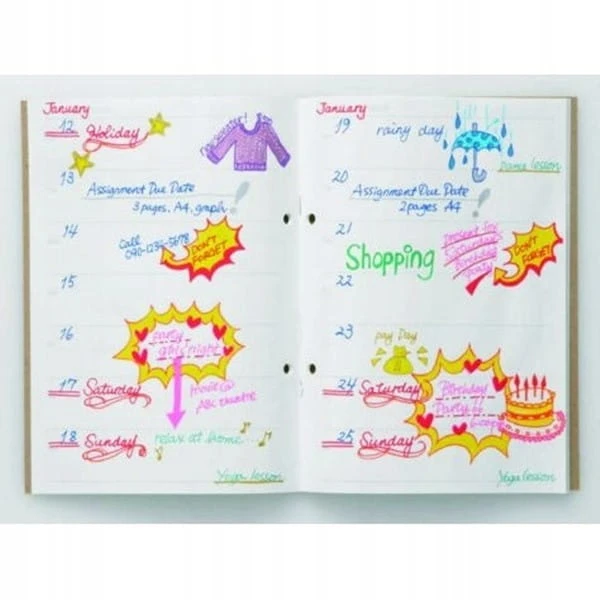 January
12 Holiday
13
Assignment Due Date
3 pages, A4, graph
14
Call
090-1234-5678
DON'T
FORGET
15
16
party
girls night
17 Saturday
movie @
ABC theatre
18 Sunday
relax at home...
Yoga lesson
January
19 rainy day
Dance lesson
20
Assignment Due Date
2 pages A4
21
Present for
Saturday
Birthday
Party
DON'T
FORGET
Shopping
22
23
pay Day
24 Saturday
Birthday
Party @
25 Sunday
Yoga lesson